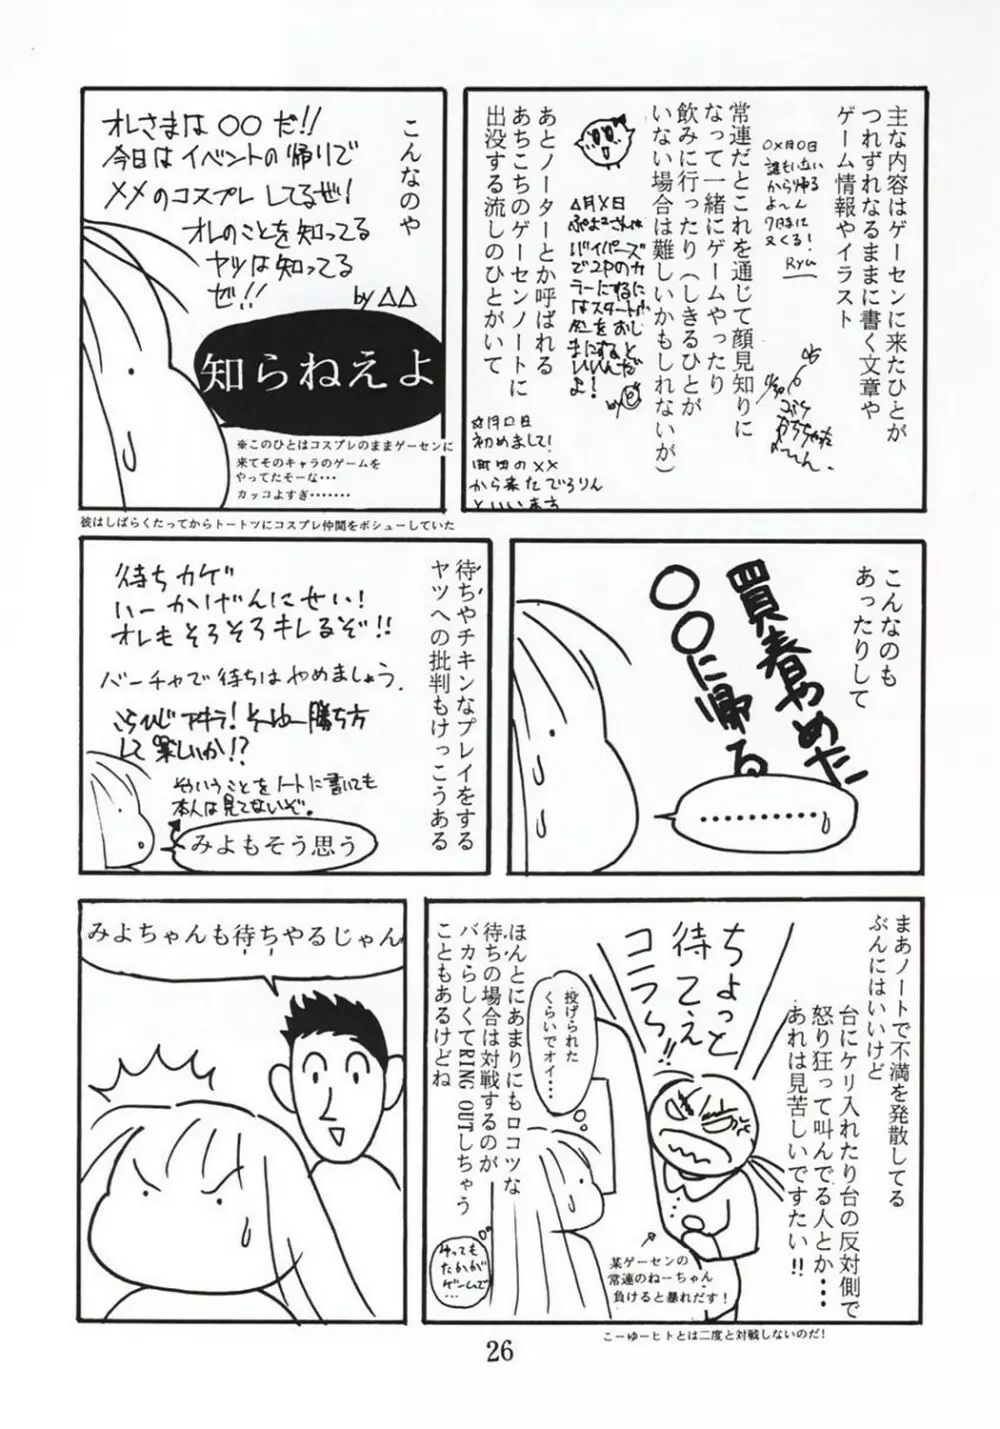 主な内容はゲーセンに来たひとが
つれずれなるままに書く文章や
ゲーム情報やイラスト
○×月○日
誰もいない
から帰る
7時に
又くる!
Ryu
常連だとこれを通じて顔見知りに
なって一緒にゲームやったり
飲みに行ったり(しきるひとが
いない場合は難しいかもしれないが)
△月×日
あとノーターとか呼ばれる
あちこちのゲーセンノートに
出没する流しのひとがいて
初めまして!
町田の××
から来たでろりん
といいます
こんなのや
オレさまは○○だ!!
今日はイベントの帰りで
××のコスプレしてるぜ!
オレのことを知ってる
ヤツは知ってる
ぜ!!
by △△
知らねえよ
※このひとはコスプレのままゲーセンに
来てそのキャラのゲームを
やってたそーな・・・
カッコよすぎ・・・・・・・
彼はしばらくたってからトートツにコスプレ仲間をボシューしていた
こんなのも
あったりして
買春やめた
○○に帰る
・・・・・・・・・・・
待ちやチキンなプレイをする
ヤツへの批判もけっこうある
待ちカゲ
いーかげんにせい!
オレもそろそろキレるぞ!!
バーチャで待ちはやめましょう.
こらひじアキラ!そゆー勝ち方
して楽しいか!?
そういうことをノートに書いても
本人は見てないぞ。
みよもそう思う
まあノートで不満を発散してる
ぶんにはいいけど
台にケリ入れたり台の反対側で
怒り狂って叫んでる人とか・・・
あれは見苦しいですたい!!
ちょっと
待てぇ
コラぁ!!
投げられた
くらいでオイ・・・
某ゲーセンの
常連のねーちゃん
負けると暴れだす!
ほんとにあまりにもロコツな
待ちの場合は対戦するのが
バカらしくてRING OUTしちゃう
こともあるけどね
たかが
ゲームで
…
こーゆーヒトとは二度と対戦しないのだ!
みよちゃんも待ちやるじゃん
26